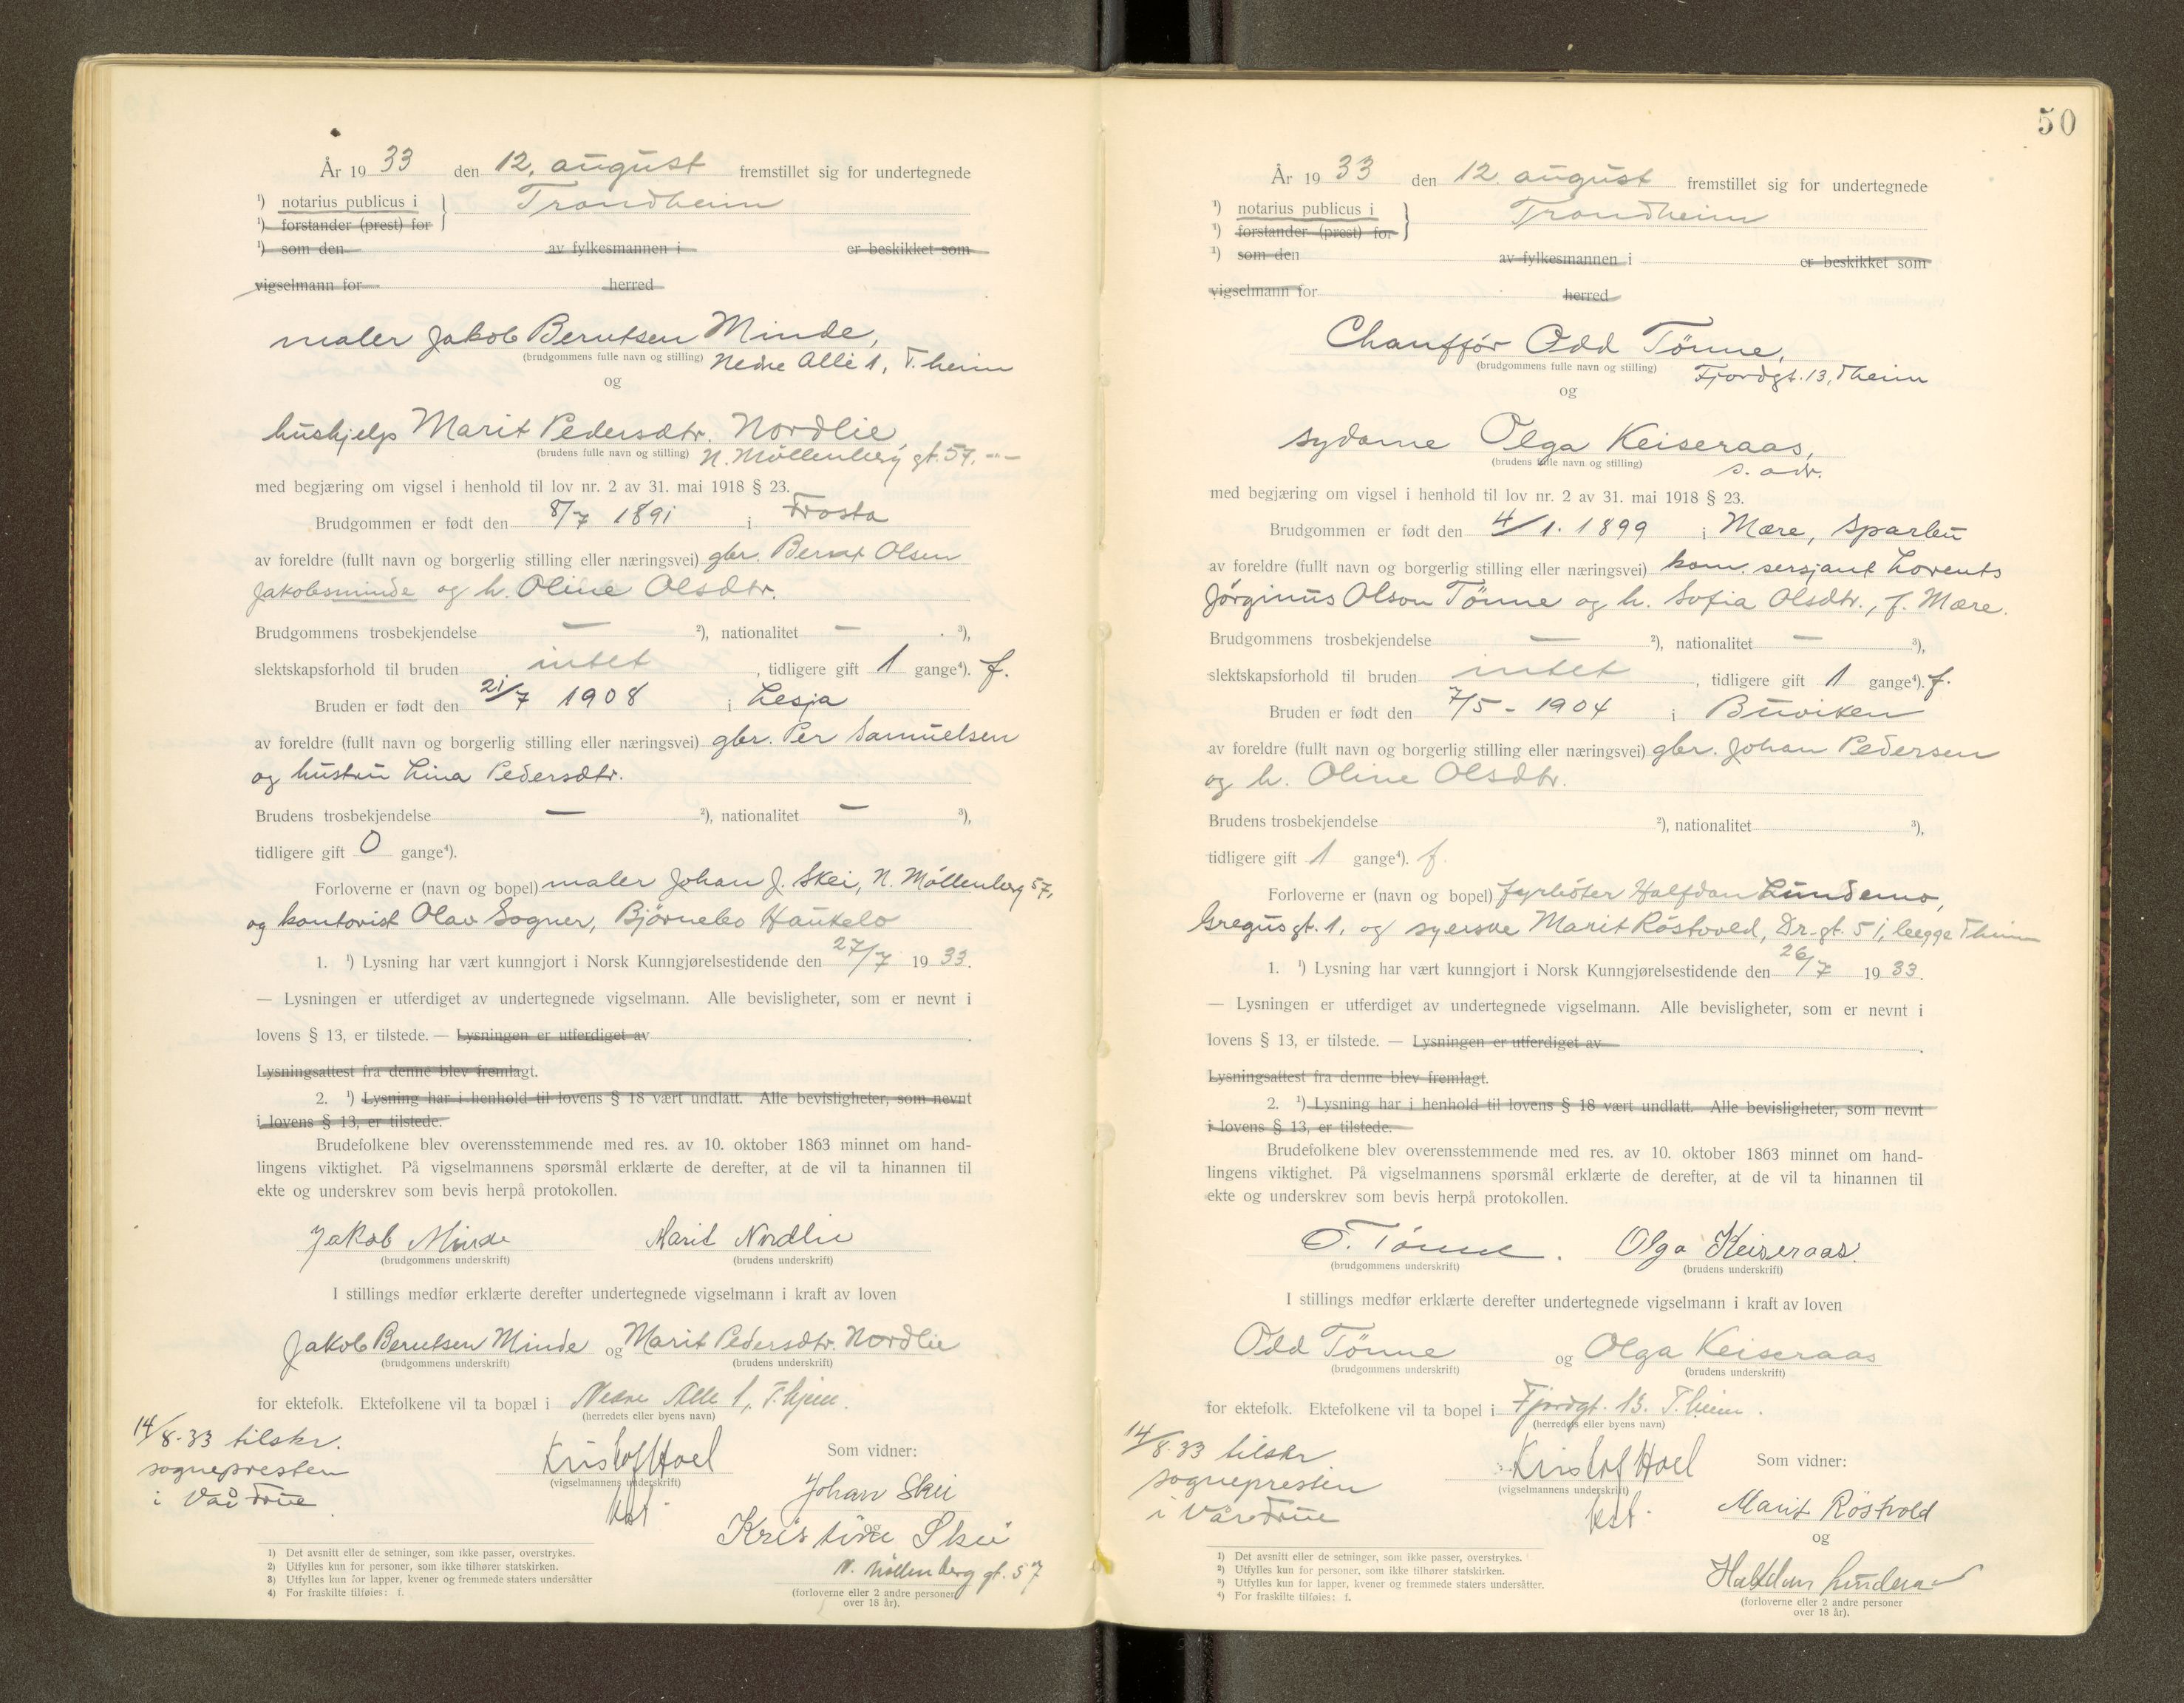 År 19 33 den 12. august fremstillet sig for undertegnede
¹) notarius publicus i
¹) forstander (prest) for
} Trondheim
¹) som den av fylkesmannen i er beskikket som
vigselmann for herred
maler Jakob Berntsen Minde,
(brudgommens fulle navn og stilling) Nedre Allé 1, T.heim
og
hushjelp Marit Pedersdtr. Nordlie,
(brudens fulle navn og stilling) N. Möllenberg gt. 57. -"-
med begjæring om vigsel i henhold til lov nr. 2 av 31. mai 1918 § 23.
Brudgommen er født den 8/7 1891 i Frosta
av foreldre (fullt navn og borgerlig stilling eller næringsvei) gbr. Bernt Olsen
Jakobsminde og h. Oline Olsdtr.
Brudgommens trosbekjendelse — ²), nationalitet — ³),
slektskapsforhold til bruden intet, tidligere gift 1 gange⁴). f.
Bruden er født den 21/7 1908 i Lesja
av foreldre (fullt navn og borgerlig stilling eller næringsvei) gbr. Per Samuelsen
og hustru Lina Pedersdtr.
Brudens trosbekjendelse — ²), nationalitet — ³),
tidligere gift 0 gange⁴).
Forloverne er (navn og bopel) maler Johan J. Skei, N. Möllenberg 57,
og kontorist Olav Sogner, Bjørnebo Haukelo
1. ¹) Lysning har vært kunngjort i Norsk Kunngjørelsestidende den 27/7 19 33.
— Lysningen er utferdiget av undertegnede vigselmann. Alle bevisligheter, som er nevnt i
lovens § 13, er tilstede. — Lysningen er utferdiget av
Lysningsattest fra denne blev fremlagt.
2. ¹) Lysning har i henhold til lovens § 18 vært undlatt. Alle bevisligheter, som nevnt
i lovens § 13, er tilstede.
Brudefolkene blev overensstemmende med res. av 10. oktober 1863 minnet om hand-
lingens viktighet. På vigselmannens spørsmål erklærte de derefter, at de vil ta hinannen til
ekte og underskrev som bevis herpå protokollen.
Jakob Minde Marit Nordlie
(brudgommens underskrift) (brudens underskrift)
I stillings medfør erklærte derefter undertegnede vigselmann i kraft av loven
Jakob Berntsen Minde og Marit Pedersdtr. Nordlie
(brudgommens underskrift) (brudens underskrift)
for ektefolk. Ektefolkene vil ta bopæl i Nedre Alle 1, T.hjem.
(herredets eller byens navn)
14/8-33 tilskr.
sognepresten
i Vår Frue
Kristof Hoel
(vigselmannens underskrift)
kst.
Som vidner:
Johan Skei
og
Kristine Skei
N. Möllenberg gt. 57
(forloverne eller 2 andre personer
over 18 år).
1) Det avsnitt eller de setninger, som ikke passer, overstrykes.
2) Utfylles kun for personer, som ikke tilhører statskirken.
3) Utfylles kun for lapper, kvener og fremmede staters undersåtter
4) For fraskilte tilføies: f.
50
År 19 33 den 12. august fremstillet sig for undertegnede
¹) notarius publicus i
¹) forstander (prest) for
} Trondheim
¹) som den av fylkesmannen i er beskikket som
vigselmann for herred
Chauffør Odd Tönne,
(brudgommens fulle navn og stilling) Fjordgt. 13, Theim
og
sydame Olga Keiseraas,
(brudens fulle navn og stilling) s. adr.
med begjæring om vigsel i henhold til lov nr. 2 av 31. mai 1918 § 23.
Brudgommen er født den 4/1. 1899 i Mære, Sparbu
av foreldre (fullt navn og borgerlig stilling eller næringsvei) kom. sersjant Lorents
Jörginus Olson Tönne og h. Sofia Olsdtr., f. Mære.
Brudgommens trosbekjendelse — ²), nationalitet — ³),
slektskapsforhold til bruden intet, tidligere gift 1 gange⁴). f.
Bruden er født den 7/5 - 1904 i Buviken
av foreldre (fullt navn og borgerlig stilling eller næringsvei) gbr. Johan Pedersen
og h. Oline Olsdtr.
Brudens trosbekjendelse ²), nationalitet ³),
tidligere gift 1 gange⁴). f.
Forloverne er (navn og bopel) fyrböter Halfdan Lundemo,
Gregusgt. 1, og syerske Marit Röstvold, Dr.-gt. 51, begge Theim
1. ¹) Lysning har vært kunngjort i Norsk Kunngjørelsestidende den 26/7 19 33.
— Lysningen er utferdiget av undertegnede vigselmann. Alle bevisligheter, som er nevnt i
lovens § 13, er tilstede. — Lysningen er utferdiget av
Lysningsattest fra denne blev fremlagt.
2. ¹) Lysning har i henhold til lovens § 18 vært undlatt. Alle bevisligheter, som nevnt
i lovens § 13, er tilstede.
Brudefolkene blev overensstemmende med res. av 10. oktober 1863 minnet om hand-
lingens viktighet. På vigselmannens spørsmål erklærte de derefter, at de vil ta hinannen til
ekte og underskrev som bevis herpå protokollen.
O. Tönne. Olga Keiseraas.
(brudgommens underskrift) (brudens underskrift)
I stillings medfør erklærte derefter undertegnede vigselmann i kraft av loven
Odd Tönne og Olga Keiseraas
(brudgommens underskrift) (brudens underskrift)
for ektefolk. Ektefolkene vil ta bopel i Fjordgt. 13. T.heim.
(herredets eller byens navn)
14/8-33 tilskr
sognepresten
i Vår Frue
Kristof Hoel
(vigselmannens underskrift)
kst.
Som vidner:
Marit Röstvold
og
Halfdan Lundemo
(forloverne eller 2 andre personer
over 18 år).
¹) Det avsnitt eller de setninger, som ikke passer, overstrykes.
²) Utfylles kun for personer, som ikke tilhører statskirken.
³) Utfylles kun for lapper, kvener og fremmede staters undersåtter.
⁴) For fraskilte tilføies: f.